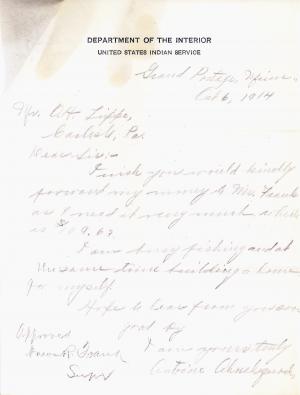 DEPARTMENT OF THE INTERIOR
UNITED STATES INDIAN SERVICE
Grand Portage, Minn.,
Oct 6, 1914
Mr. O.H. Lipps,
Carlisle, Pa.
Dear Sir:-
I wish you would kindly
forward my money to Mrs. Frank
as I need it very much which
is $ 9.62
I am busy fishing and at
the same time building a home
for myself.
Hope to hear from you soon
good by
Approved
I am yours truly
Frank
Antoine
Supt